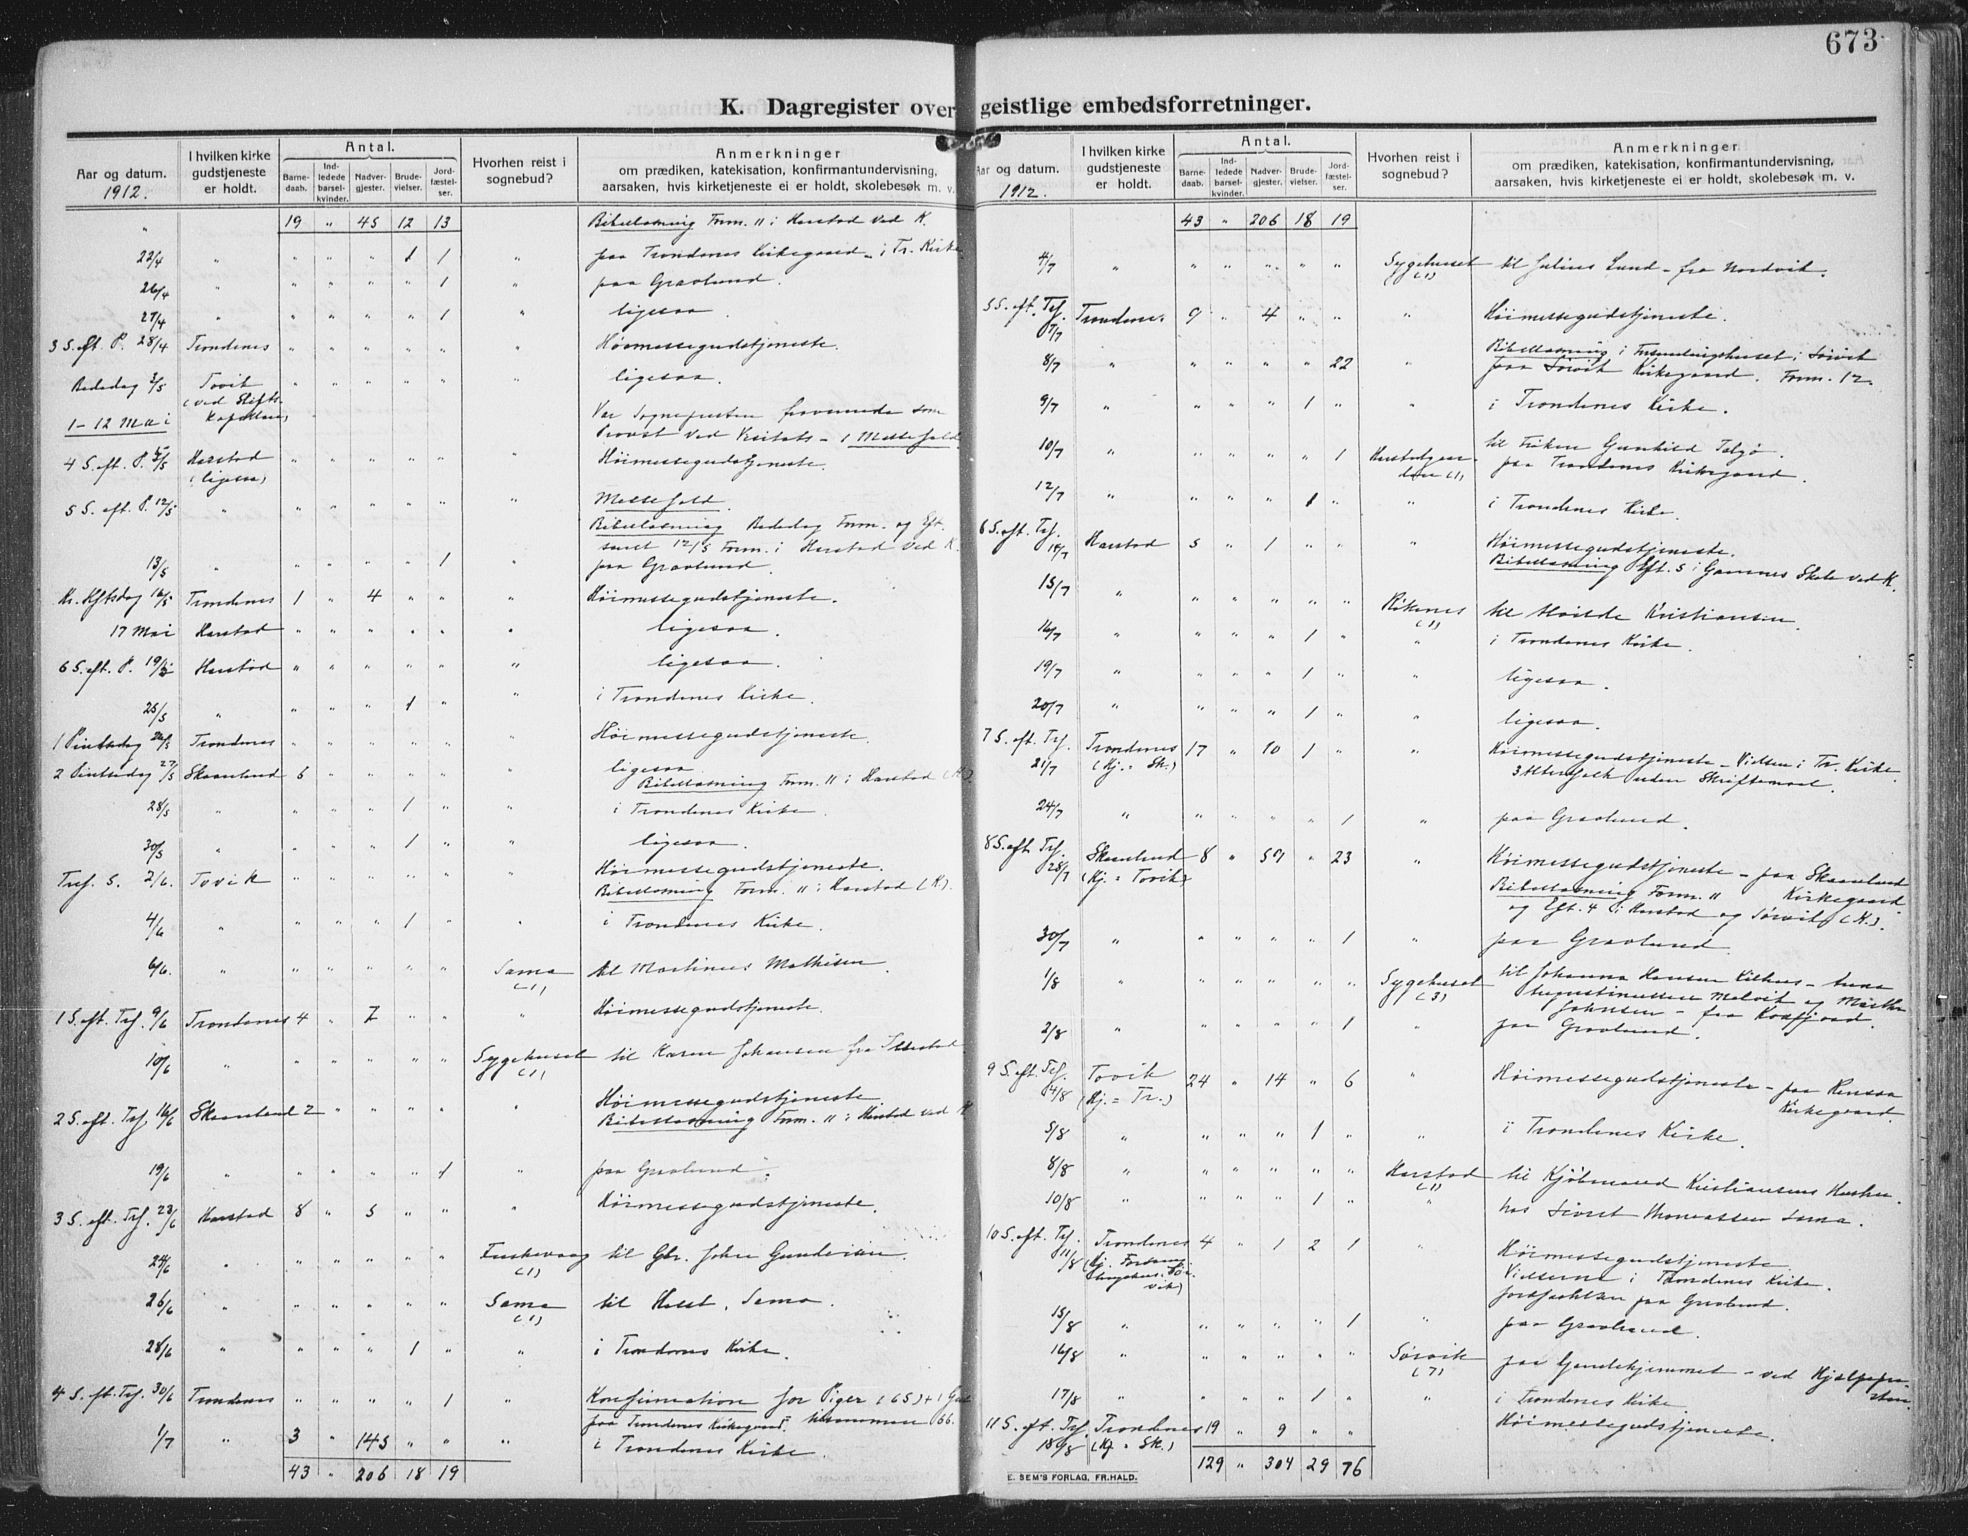 673
K. Dagregister over geistlige embedsforretninger.
Aar og datum. 1912.
I hvilken kirke gudstjeneste er holdt.
Antal.
Barne-daab. Ind-ledede barsel-kvinder. Nadver-gjester. Brude-vielser. Jord-fæstel-ser.
Hvorhen reist i sognebud?
Anmerkninger
om prædiken, katekisation, konfirmantundervisning,
aarsaken, hvis kirketjeneste ei er holdt, skolebesøk m. v.
" 19 " 45 12 13 Bibellæsning Form. 11 i Harstad ved K.
22/4 " " " " 1 1 " paa Trondenes Kirkegaard - i Tr. Kirke
26/4 " " " " " 1 " paa Gravlund.
27/4 " " " " 1 " ligesaa.
3 S. eft. P. 28/4 Trondenes " " " " " " Høimessegudstjeneste.
Bededag 3/5 Tovik " " " " " " ligesaa.
(ved Stifts-
kapellan)
1-12 Mai Var Sognepresten fraværende som
Provst ved Visitats - 1 Messefald
4 S. eft. P. 5/5 Harstad " " " " " " Høimessegudstjeneste.
(ligesaa)
5 S. eft. P. 12/5 " " Messefald.
Bibellæsning Bededag Form. og Eft.
samt 12/5 Form. i Harstad ved K.
13/5 " 1 " paa Gravlund.
Kr. Hftsdag 16/5 Trondenes 1 " 4 " " " Høimessegudstjeneste.
17 Mai Harstad " " " " " " ligesaa.
6 S. eft. P. 19/5 Harstad " " " " " " ligesaa.
25/5 " " " " 1 " " i Trondenes Kirke.
1 Pintsedag 26/5 Trondenes " " " " " " Høimessegudstjeneste.
2 Pintsedag 27/5 Skaanland 6 " " " " " ligesaa
Bibellæsning Form. 11 i Harstad (K).
28/5 " " " " 1 " " i Trondenes Kirke.
30/5 " " " " 1 " " ligesaa.
Tref. S. 2/6. Tovik " " " " " " Høimessegudstjeneste.
Bibellæsning Form. 11 i Harstad (K).
4/6 " " " " 1 " " i Trondenes Kirke.
6/6. " " " " " " Sama (1) til Martinus Mathisen.
1 S. eft. Tref. 9/6 Trondenes 4 " 7 " " " Høimessegudstjeneste.
10/6 " " " " " " Sygehuset (1) til Karen Johansen fra
2 S. eft. Tref. 16/6 Skaanland 2 " " " " " Høimessegudstjeneste
Bibellæsning Form. 11 i Harstad ved K
19/6 " " " " " 1 " paa Gravlund.
3 S. eft. Tref. 23/6 Harstad 8 " 5 " " " Høimessegudstjeneste.
24/6 " " " " " " (1) til Gbr. Johan Gundersen.
26/6 " " " " " " Sama (1) til Sama.
28/6 " " " " 1 " " i Trondenes Kirke.
4 S. eft. Tref. 30/6 Trondenes " " " " 1 " Konfirmation for Piger (65) + 1 Gut
paa Trondenes Kirkegaard. tilsammen 66.
1/7 " 3 " 145 " " " i Trondenes Kirke.
43 " 206 18 19
Aar og datum. 1912.
I hvilken kirke gudstjeneste er holdt.
Antal.
Barne-daab. Ind-ledede barsel-kvinder. Nadver-gjester. Brude-vielser. Jord-fæstel-ser.
Hvorhen reist i sognebud?
Anmerkninger
om prædiken, katekisation, konfirmantundervisning,
aarsaken, hvis kirketjeneste ei er holdt, skolebesøk m. v.
43 " 206 18 19
4/7 " " " " " " Sygehuset (1) til Julius Lund - fra Nordvik.
5 S. eft. Tref. 7/7 Trondenes 9 " 4 " " " Høimessegudstjeneste.
8/7 " " " " " 22 " Bibellæsning i Forsamlingshuset i Sørvik
paa Sørvik Kirkegaard. Form. 12.
9/7 " " " " 1 " " i Trondenes Kirke.
10/7 " " " " " 1 (1) til Frøken Gunhild
paa Trondenes Kirkegaard.
12/7 " " " " 1 " " i Trondenes Kirke.
6 S. eft. Tref. 14/7 Harstad 5 " 1 " " " Høimessegudstjeneste.
Bibellæsning Eft. 5 i Gamnes Skole ved K.
15/7 " " " " " " Røkenes (1) til Kristiansen.
16/7 " " " " 1 " " i Trondenes Kirke.
19/7 " " " " 1 " " ligesaa.
20/7 " " " " 1 " " ligesaa.
7 S. eft. Tref. 21/7 Trondenes 17 " 10 1 " " Høimessegudstjeneste - Vielsen i Tr. Kirke.
(Kj. = Sk.) 3 Altersfolk uden Skriftemaal.
24/7 " " " " " 1 " paa Gravlund.
8 S. eft. Tref. 28/7 Skaanland 8 " 59 " 23 " Høimessegudstjeneste - paa Skaanland
(Kj. = Tovik) Bibellæsning Form. 11 Kirkegaard.
og Eft. 4 i Harstad og Sørvik (K.).
30/7 " " " " " 1 " paa Gravlund
1/8 " " " " " " Sygehuset (3) til Johanna Hansen
Augustinussen Melvik og Martha
Johnsen - fra
2/8 " " " " " 1 " paa Gravlund.
9 S. eft. Tref. 4/8 Tovik 24 " 14 " 6 " Høimessegudstjeneste - paa Rensaa
(Kj. = Tr.) Kirkegaard.
5/8 " " " " 1 " " i Trondenes Kirke.
8/8 " " " " " " Harstad (1) til Kjøbmand Kristiansens Hustru.
10/8 " " " " 1 " " hos Sivert Thomassen Sama.
10 S. eft. Tref. 11/8 Trondenes 4 " 1 2 1 " Høimessegudstjeneste
(Kj. Forsam-
lingshus. Sør-
vik)
Vielserne i Trondenes Kirke.
Jordfæstelsen paa Gravlund.
15/8 " " " " " 1 " paa Gravlund.
16/8 " " " " " " Sørvik (7) paa Gamlehjemmet - ved Hjælpepre-
sten.
17/8 " " " " 1 " " i Trondenes Kirke.
11 S. eft. Tref. 18/8 Trondenes 19 " 9 " " Høimessegudstjeneste.
(Kj. = Sk.)
129 " 304 29 76
E. SEM'S FORLAG, FR.HALD.